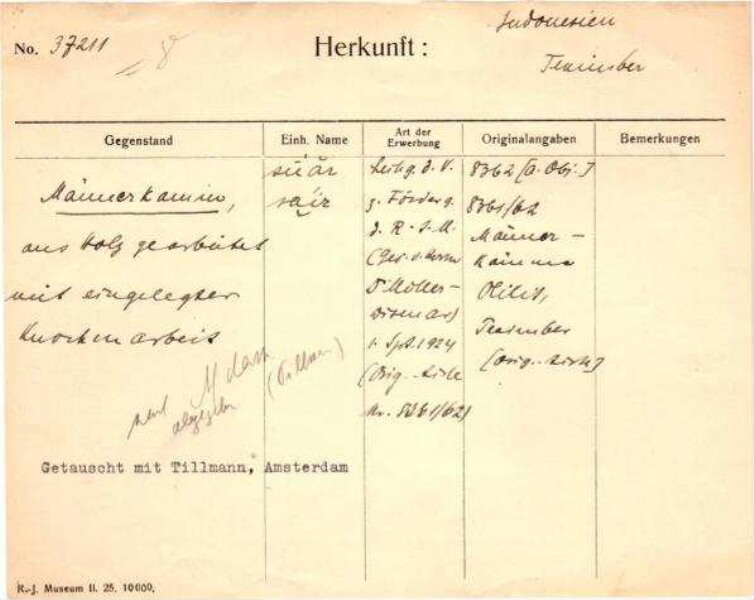 No. 37211
Herkunft:
Indonesien
Tenimber
Gegenstand
Einh. Name
Art der Erwerbung
Originalangaben
Bemerkungen
Männerkamm,
aus Holz gearbeitet
mit eingelegter
Knochenarbeit
súár
saír
Leihg. d. V.
z. Förderg.
d. R.-J.-M.
(Ges. v. Herrn
Dr Möller-
1. Spt. 1924
(Orig.
Nr. 8361/62)
8362 [a. Obj.]
8361/62
Männer-
kämme
Olilit,
Tenimber
[Orig.
abgegeben
(Tillman)
Getauscht mit Tillmann, Amsterdam
R.-J. Museum II. 25. 10000.